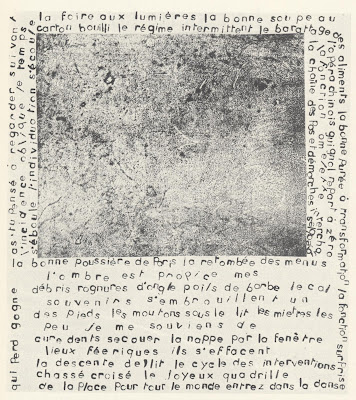 la foire aux lumières la bonne soupe au
carton bouilli le régime intermittent le barattage
des aliments la bonne Purée à transformation la fonction surprise
la bonne poussière de Paris la retombée des menus
l'ombre est propice mes
débris rognures d'ongle poils de barbe le cal
souvenirs s'embrouillent un
des pieds les moutons sous le lit les miettes les
peu je me souviens de
cure dents secouer la nappe par la fenêtre
lieux féeriques ils s'effacent
la descente de lit le cycle des interventions
chassé croisé le joyeux quadrille
de la Place Pour tout le monde entrez dans la danse
qui perd gagne
la as-tu Pensé à regarder suivant
l'incidence oblique le temps
s'éboule l'individuation s'écoule